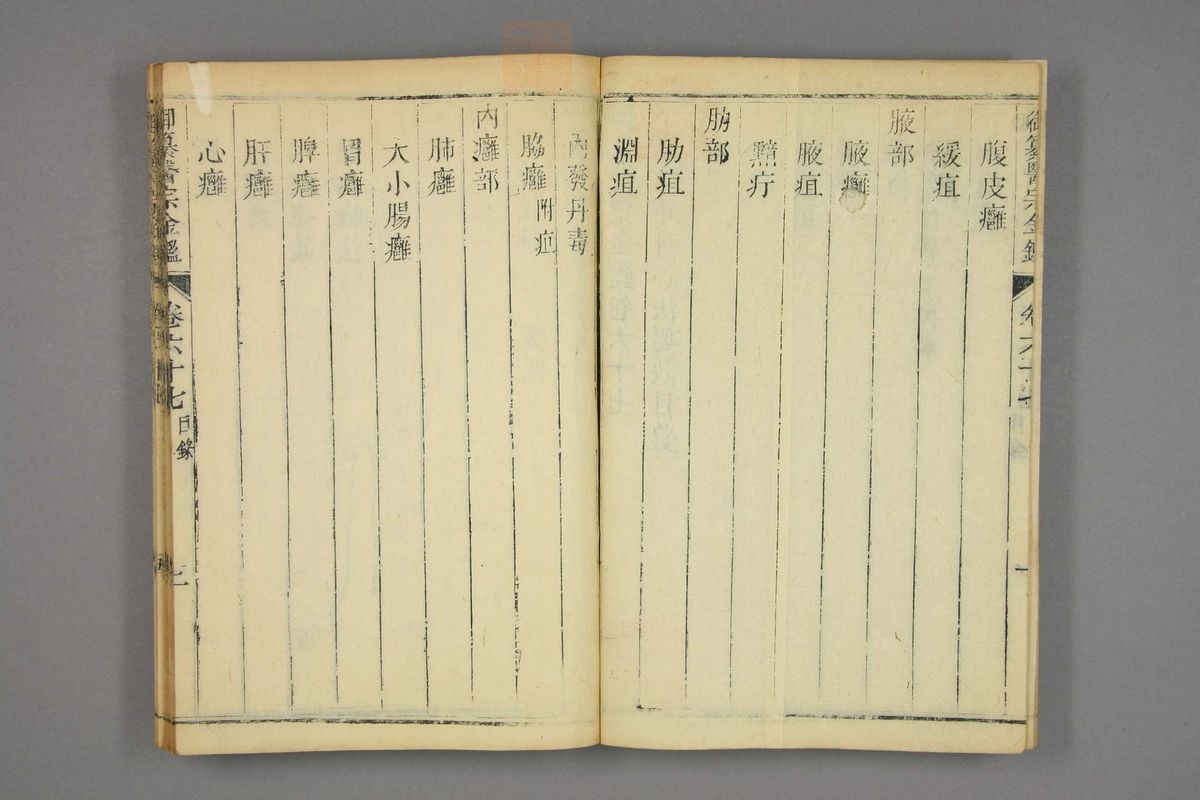 御纂醫宗金鑑
卷六十
腹皮癰
緩疽
腋部
腋癰
腋疽
黯疔
肋部
肋疽
淵疽
內發丹毒
脇癰 附疽
內癰部
肺癰
大小腸癰
胃癰
脾癰
肝癰
心癰
御纂醫宗金鑑
卷六十七 目錄